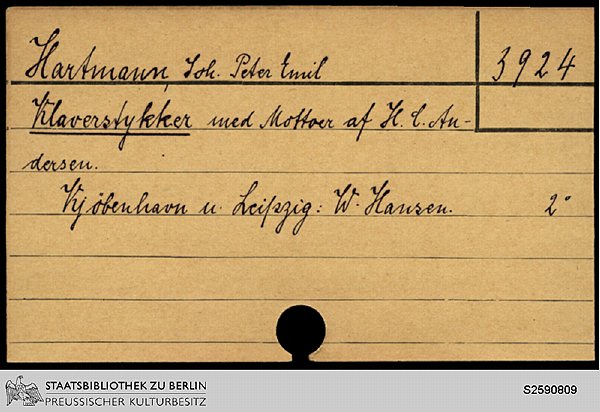 Hartmann, Joh. Peter Emil
3924
Klaverstykker med Mottoer af H. C. An-
dersen.
Kjöbenhavn u. Leipzig: W. Hansen. 2°
STAATSBIBLIOTHEK ZU BERLIN
PREUSSISCHER KULTURBESITZ
S2590809